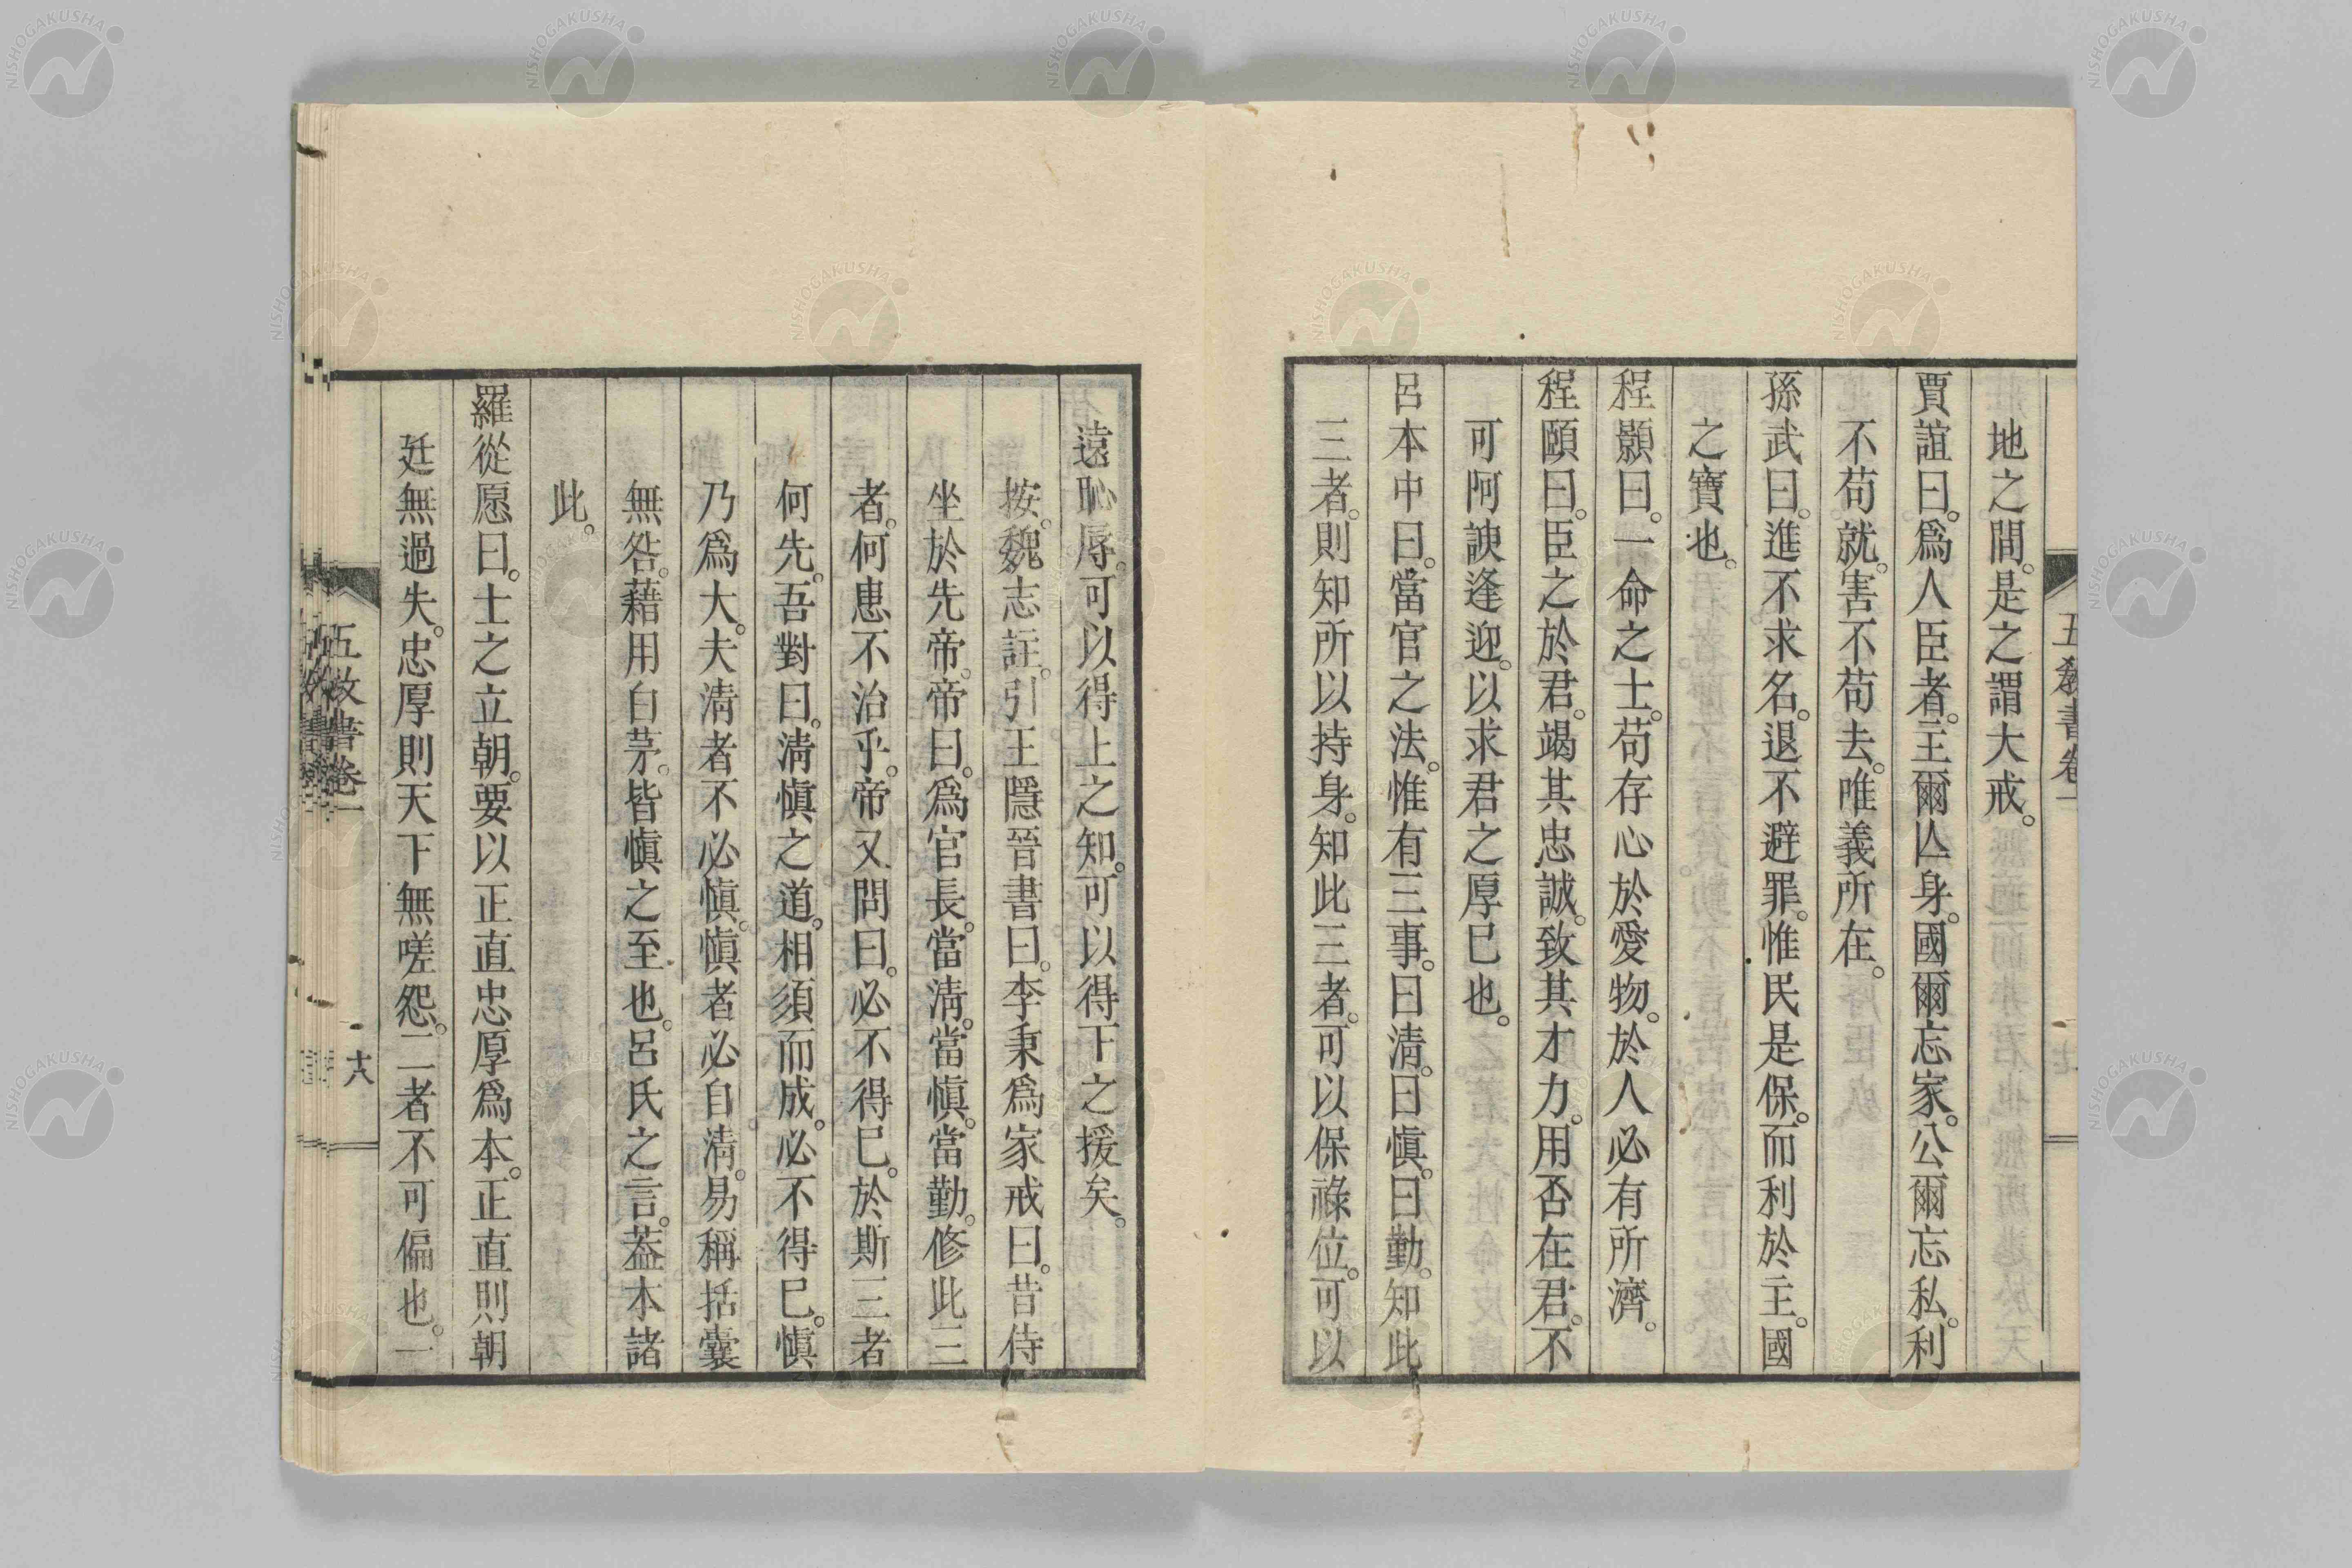 地之間。是之謂大戒。
賈誼曰。爲人臣者。主爾亾身。國爾忘家。公爾忘私。利
不苟就。害不苟去。唯義所在。
孫武曰。進不求名。退不避罪。惟民是保。而利於主。國
之寶也。
程顥曰。一命之士。苟存心於愛物。於人必有所濟。
程頤曰。臣之於君。竭其忠誠。致其才力。用否在君。不
可阿諛逢迎。以求君之厚已也。
呂本中曰。當官之法。惟有三事。曰清。曰愼。曰勤。知此
三者。則知所以持身。知此三者。可以保祿位。可以
五教書卷一
遠恥辱。可以得上之知。可以得下之援矣。
按。魏志註。引王隱晉書曰。李秉爲家戒曰。昔侍
坐於先帝。帝曰。爲官長。當淸。當愼。當勤。修此三
者。何患不治乎。帝又問曰。必不得已。於斯三者
何先。吾對曰。淸愼之道。相須而成。必不得已。愼
乃爲大。夫淸者不必愼。愼者必自淸。易稱括囊
無咎。藉用白茅。皆愼之至也。呂氏之言。葢本諸
此。
羅從愿曰。士之立朝。要以正直忠厚爲本。正直則朝
廷無過失。忠厚則天下無嗟怨。二者不可偏也。一
五教書卷一
十八
NISHOGAKUSHA
NISHOGAKUSHA
NISHOGAKUSHA
NISHOGAKUSHA
NISHOGAKUSHA
NISHOGAKUSHA
NISHOGAKUSHA
NISHOGAKUSHA
NISHOGAKUSHA
NISHOGAKUSHA
NISHOGAKUSHA
NISHOGAKUSHA
NISHOGAKUSHA